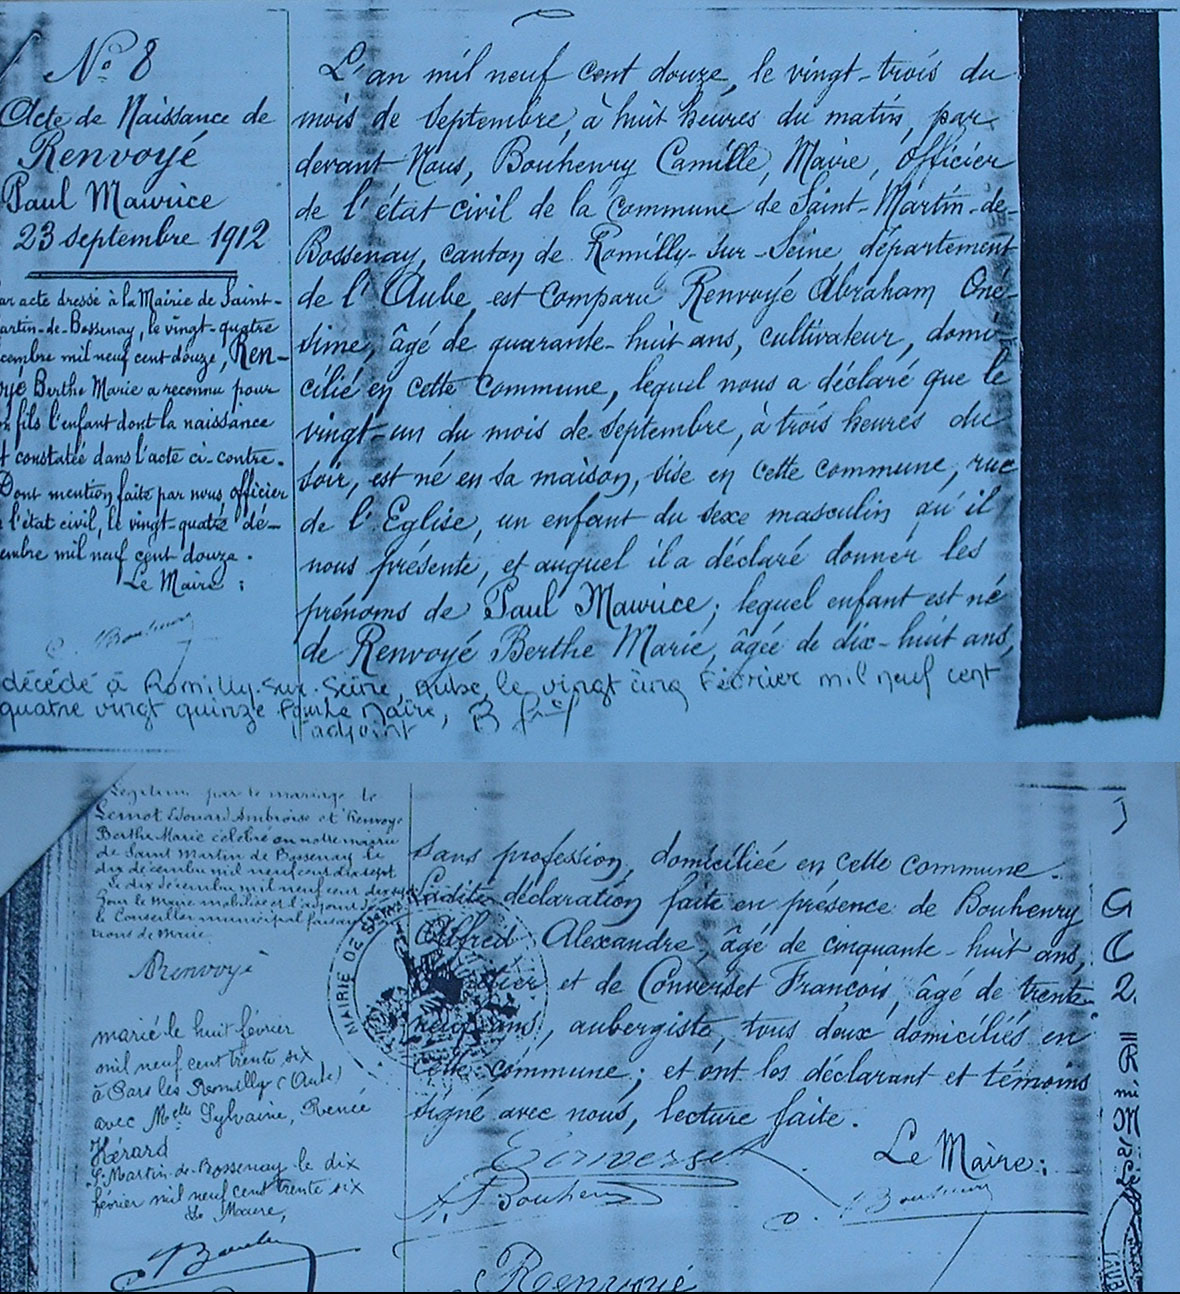 N° 8
Acte de Naissance de
Renvoyé
Paul Maurice
23 Septembre 1912
ar acte dressé à la Mairie de Saint-
artin-de-Bossenay, le vingt-quatre
cembre mil neuf cent douze, Ren-
yé Berthe Marie a reconnu pour
fils l'enfant dont la naissance
t constatée dans l'acte ci-contre.
Dont mention faite par nous, officier
l'état civil, le vingt-quatre dé-
embre mil neuf cent douze.
Le Maire :
C. Bouhenry
L'an mil neuf cent douze, le vingt-trois du
mois de Septembre, à huit heures du matin, par
devant Nous, Bouhenry Camille, Maire, Officier
de l'état civil de la Commune de Saint-Martin-de-
Bossenay, canton de Romilly-sur-Seine département
de l'Aube, est comparu Renvoyé Abraham Oné-
sime, âgé de quarante-huit ans, cultivateur, domi-
cilié en cette Commune, lequel nous a déclaré que le
vingt-un du mois de Septembre, à trois heures du
soir, est né en sa maison, sise en cette commune, rue
de l'Eglise, un enfant du sexe masculin qu'il
nous présente, et auquel il a déclaré donner les
prénoms de Paul Maurice; lequel enfant est né
de Renvoyé Berthe Marie, âgée de dix-huit ans,
décédé à Romilly-sur-Seine, Aube, le vingt cinq Février mil neuf cent
quatre vingt quinze Pour le Maire,
l'adjoint
Légitimé par le mariage de
Lemot Edouard Ambroise et Renvoyé
Berthe Marie célébré en notre mairie
de Saint Martin de Bossenay le
dix décembre mil neuf cent dix sept
Le dix décembre mil neuf cent dix sept
Pour le Maire mobilisé et l'adjoint
le Conseiller municipal faisant
tions de Maire
Renvoyé
marié le huit février
mil neuf cent trente six
à Pars les Romilly (Aube)
avec Melle Sylvaine, Renée
Hérard
St Martin-de-Bossenay le dix
février mil neuf cent trente six
Le Maire,
C. Bouhenry
sans profession, domiciliée en cette commune.
Ladite déclaration faite en présence de Bouhenry
Alfred Alexandre, âgé de cinquante-huit ans,
et de Converset François, âgé de trente
neuf ans, aubergiste, tous deux domiciliés en
cette commune; et ont les déclarant et témoins
signé avec nous, lecture faite.
MAIRIE DE
Converset
Le Maire :
A. Bouhenry
C. Bouhenry
Renvoyé